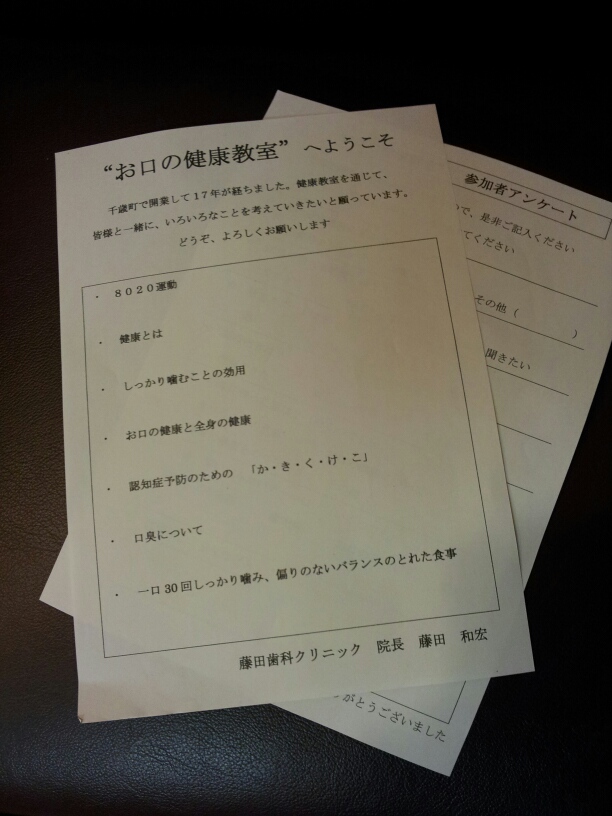 “お口の健康教室” へようこそ
千歳町で開業して１７年が経ちました。健康教室を通じて、
皆様と一緒に、いろいろなことを考えていきたいと願っています。
どうぞ、よろしくお願いします
・ ８０２０運動
・ 健康とは
・ しっかり噛むことの効用
・ お口の健康と全身の健康
・ 認知症予防のための 「か・き・く・け・こ」
・ 口臭について
・ 一口30回しっかり噛み、偏りのないバランスのとれた食事
藤田歯科クリニック 院長 藤田 和宏
参加者アンケート
ので、是非ご記入ください
てください
その他（ ）
聞きたい
がとうございました